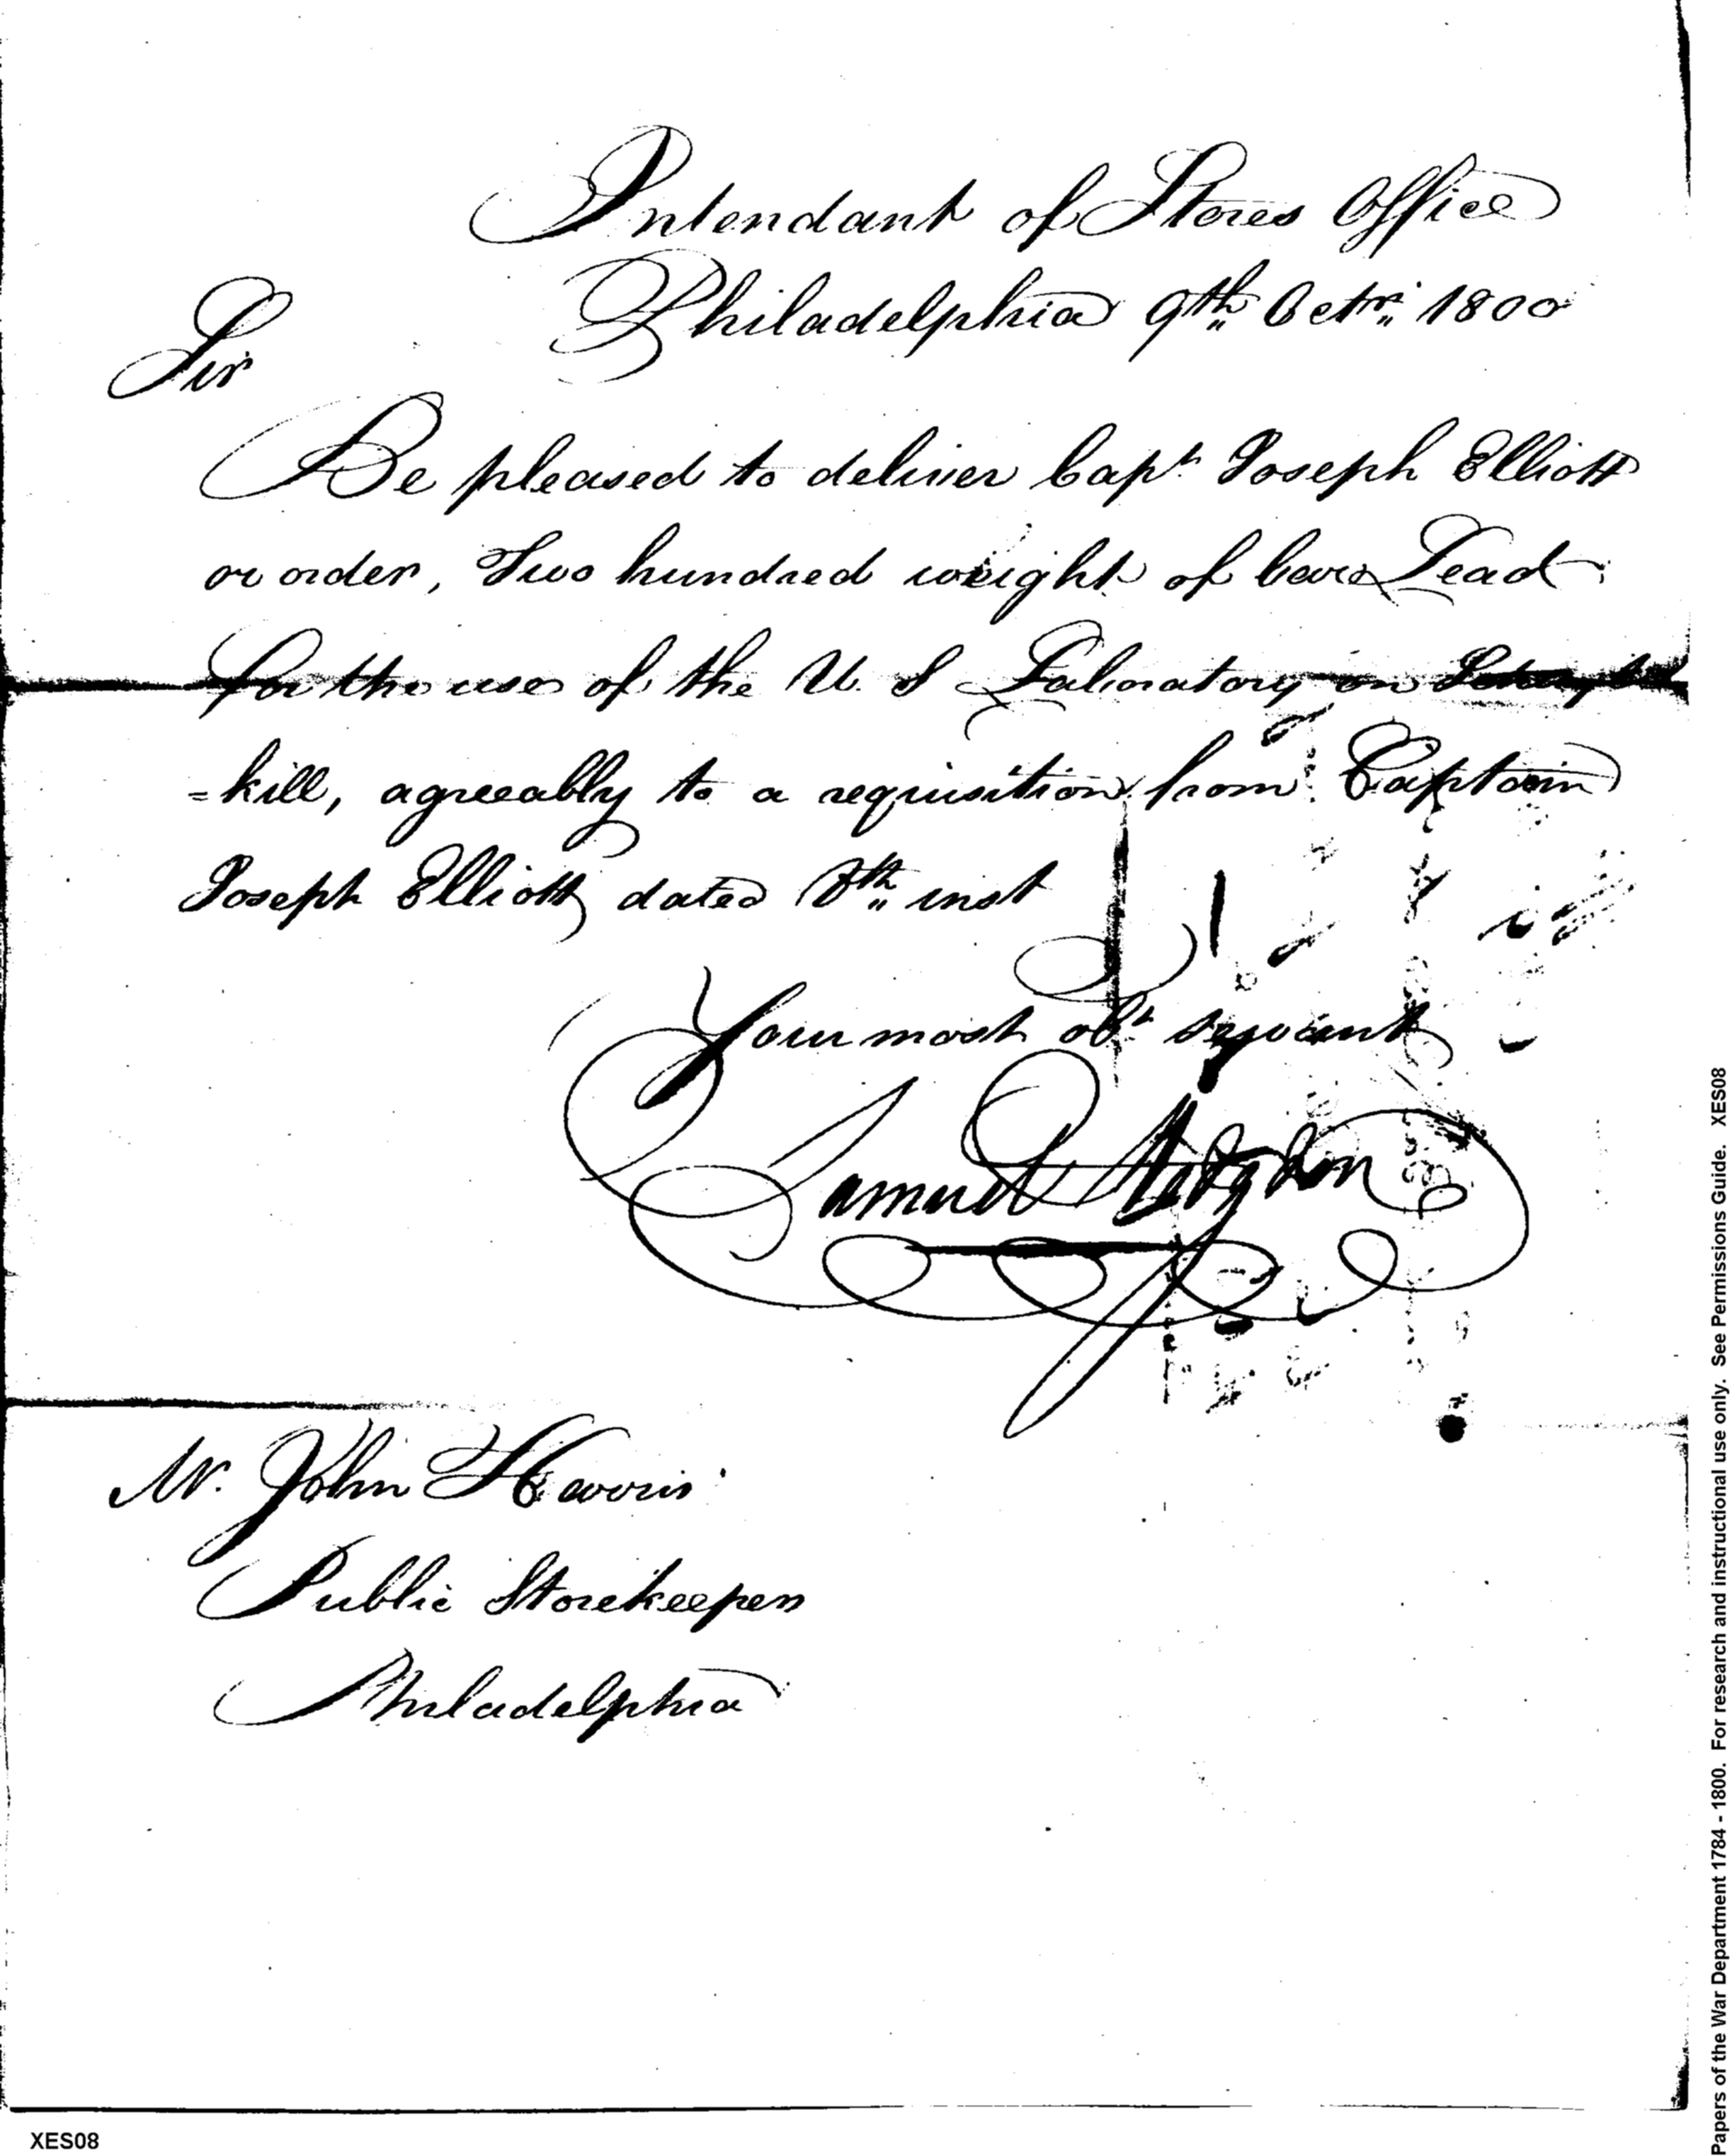 Intendant of Stores Office
Philadelphia 9th Octr: 1800
Sir
Be pleased to deliver Capt. Joseph Elliott
or order, Two hundred weight of bar Lead
for the use of the U. S Laboratory on
=kill, agreeably to a requisition from Captain
Joseph Elliott dated 8th inst
Your most obt servant
Samuel Hodgdon
Mr. John Harris
Public Storekeeper
Philadelphia
XES08
Papers of the War Department 1784 - 1800. For research and instructional use only. See Permissions Guide. XES08